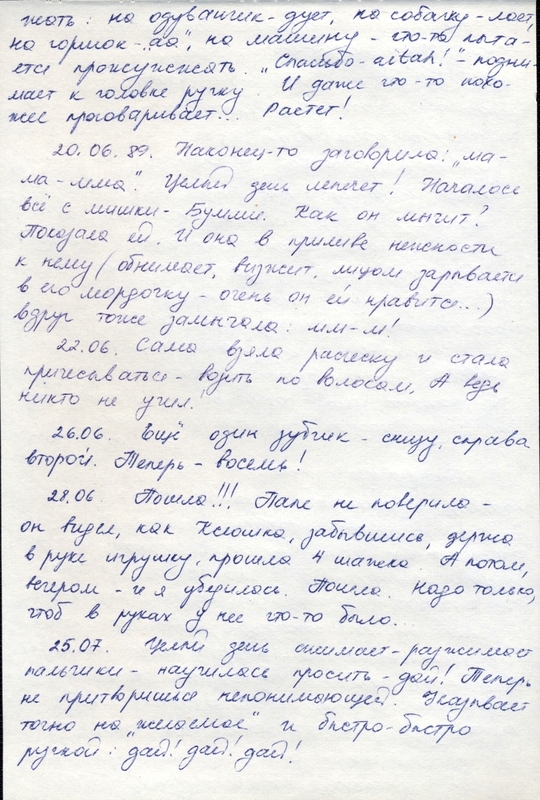 жать: на одуванчик - дует, на собачку - лает,
на горшок - "аа", на машину - что-то пыта-
ется прожужжать. "Спасибо - aitah!" - подни-
мает к головке ручку. И даже что-то похо-
жее проговаривает... Растёт!
20.06.89. Наконец-то заговорила: "ма-
ма-мма". Целый день лепечет! Началось
всё с мишки - Бумми. Как он мычит?
Показала ей. И она в приливе нежности
к нему (обнимает, визжит, лицом зарывается
в его мордочку - очень он ей нравится...)
вдруг тоже замычала: мм-м!
22.06. Сама взяла расческу и стала
причесываться - водить по волосам. А ведь
никто не учил!
26.06. Ещё один зубчик - снизу, справа
второй. Теперь - восемь!
28.06 Пошла!!! Папе не поверила -
он видел, как Ксюшка, забывшись, держа
в руке игрушку, прошла 4 шажка. А потом,
вечером - и я убедилась. Пошла. Надо только,
чтоб в руках у неё что-то было...
25.07. Целый день сжимает-разжимает
пальчики - научилась просить - дай! Теперь
не притворишься непонимающей. Указывает
точно на "желаемое" и быстро-быстро
ручкой: "дай! дай! дай!